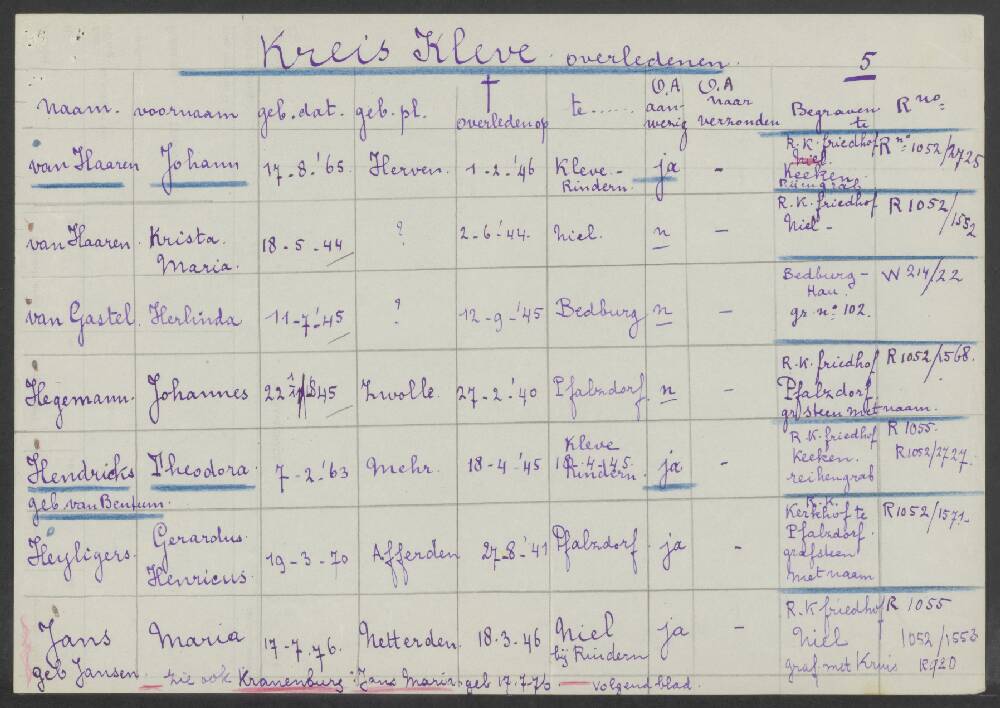 Kreis Kleve overledenen. 5
Naam. voornaam geb. dat. geb. pl. † overleden op te...... O.A aanwezig O.A naar verzonden Begraven te R no.
van Haaren Johann 17-8-'65 Herven. 1-2-'46 Kleve - Rindern. ja - R.K. friedhof Niel. Keeken R no. 1052/2725
van Haaren. Krista. Maria. 18-5-44 ? 2-6-'44. Niel. n - R.K. friedhof Niel - R 1052/1552
van Gastel. Herlinda 11-7-'45 ? 12-9-'45 Bedburg n - Bedburg-Hau. gr. no. 102. W 214/22
Hegemann. Johannes Zwolle. 27-2-'40 Pfalzdorf. n - R.K. friedhof Pfalzdorf grafsteen met naam. R 1052/1568.
Hendricks Theodora. 7-2-'63 Mehr. 18-4-'45 Kleve Rindern. ja - R.K. friedhof Keeken. reihengrab R 1055. R 1052/2727.
geb. van Bentum.
Heyligers. Gerardus. Henricus. 19-3-70 Afferden 27-8-'41 Pfalzdorf. ja - R.K. Kerkhof te Pfalzdorf. grafsteen met naam R 1052/1571
Jans Maria 17-7-76. Netterden. 18.3.46 Niel bij Rindern ja - R.K friedhof Niel graf met Kruis R 1055 1052/1553 R 920
geb Jansen. — zie ook Kranenburg: Jans Maria. geb 17.7.76 — volgend blad.